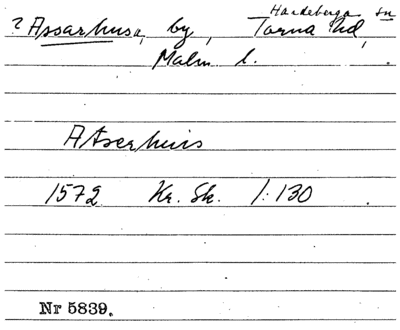 ? Assarhusa, by, Hardeberga sn
Torna hd,
Malm l.
Atserhuis
1572 Kr. Sk. 1:130.
Nr 5839.